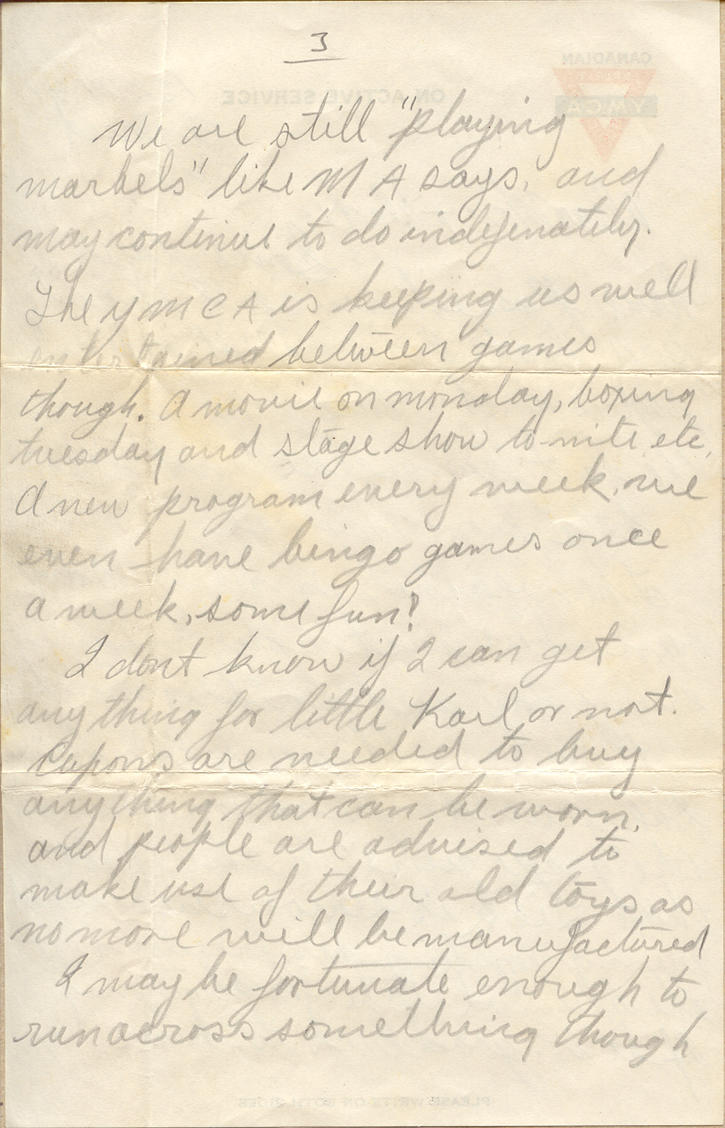 3
CANADIAN
YMCA
ON ACTIVE SERVICE
We are still "playing
marbels" like M A says, and
may continue to do indefenately.
The Y M C A is keeping us well
entertained between games
though. A movie on monday, boxing
tuesday and stage show to-nite etc.
A new program every week, we
even have bingo games once
a week, some fun!
I dont know if I can get
any thing for little Karl or not.
Cupons are needed to buy
anything that can be worn,
and people are advised to
make use of their old toys as
no more will be manufactured
I may be fortunate enough to
run across something though
PLEASE WRITE ON BOTH SIDES